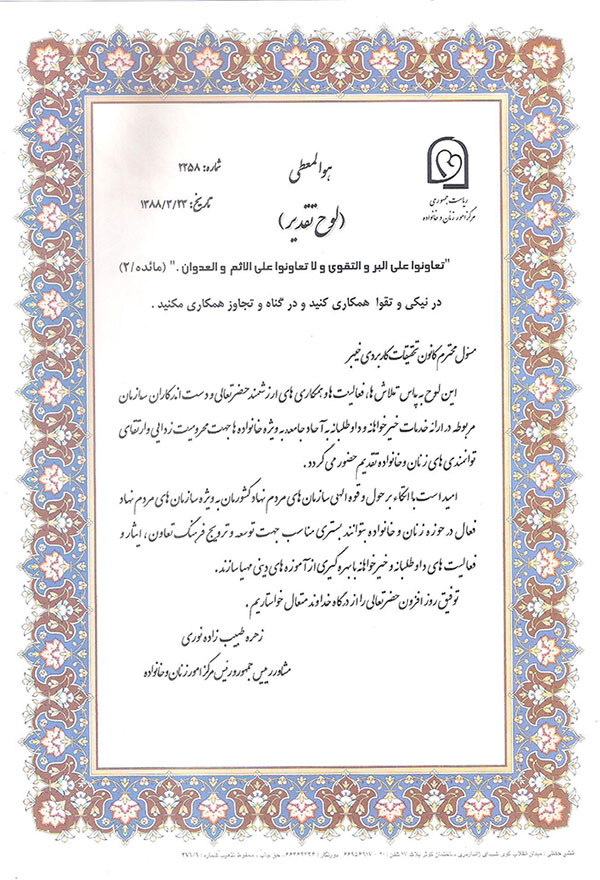 هوالمعطی
شماره: ۲۲۵۸
ریاست جمهوری
مرکز امور زنان و خانواده
تاریخ: ۱۳۸۸/۳/۲۳
(لوح تقدیر)
"تعاونوا علی البر و التقوی و لا تعاونوا علی الاثم و العدوان ." (مائده/۲)
در نیکی و تقوا همکاری کنید و در گناه و تجاوز همکاری مکنید .
مسئول محترم کانون تحقیقات کاربردی خیبر
این لوح به پاس تلاش ها، فعالیت ها و همکاری های ارزشمند حضرتعالی و دست اندرکاران سازمان
مربوطه در ارائه خدمات خیرخواهانه و داوطلبانه به آحاد جامعه به ویژه خانواده ها جهت محرومیت زدایی و ارتقای
توانمندی های زنان و خانواده تقدیم حضور می گردد .
امید است با اتکاء بر حول و قوه الهی سازمان های مردم نهاد کشورمان به ویژه سازمان های مردم نهاد
فعال در حوزه زنان و خانواده بتوانند بستری مناسب جهت توسعه و ترویج فرهنگ تعاون، ایثار و
فعالیت های داوطلبانه و خیرخواهانه با بهره گیری از آموزه های دینی مهیا سازند .
توفیق روز افزون حضرتعالی را از درگاه خداوند متعال خواستاریم .
زهره طبیب زاده نوری
مشاور رییس جمهور و رئیس مرکز امور زنان و خانواده